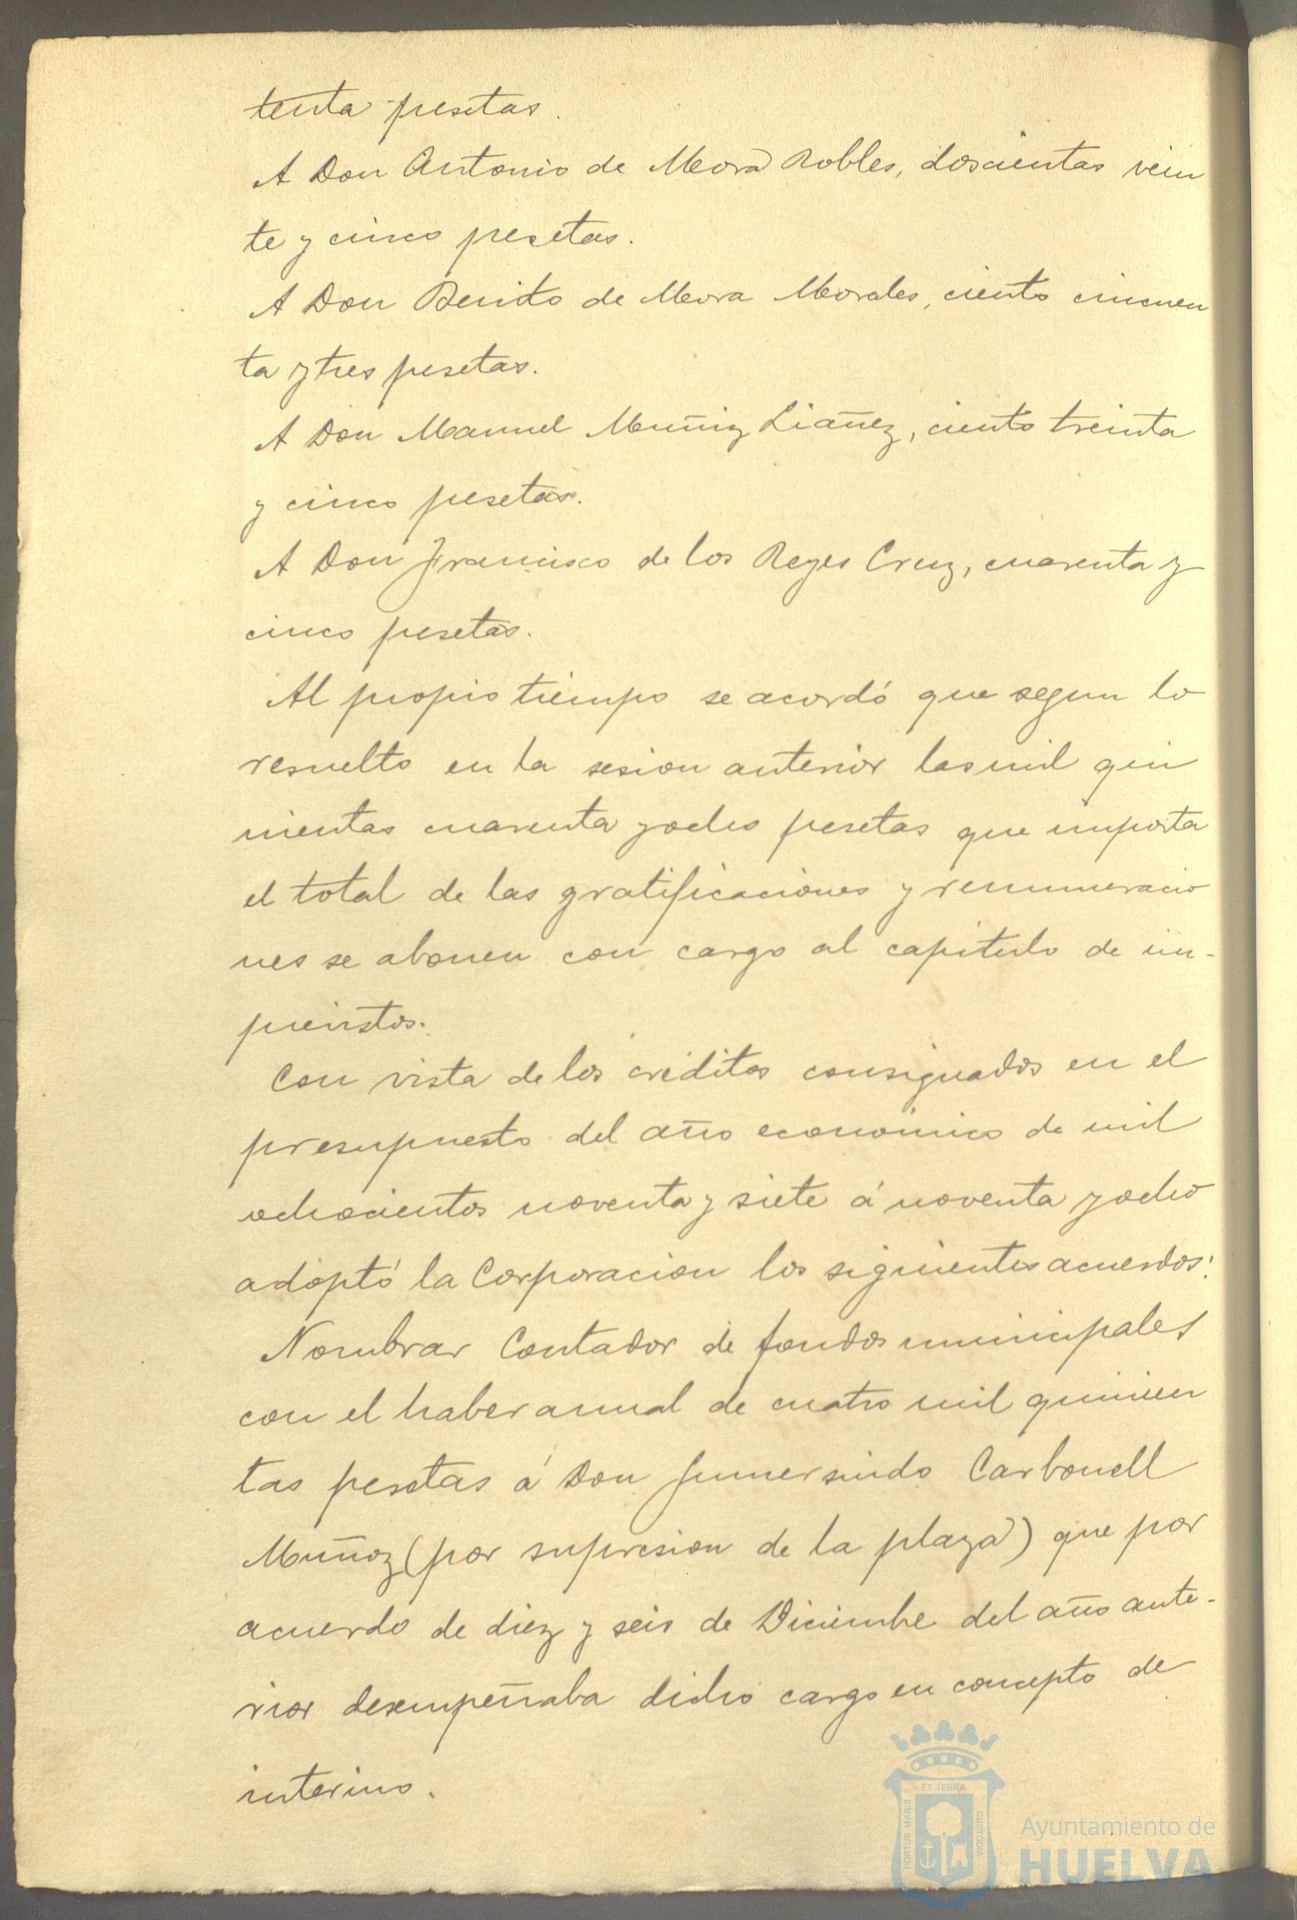 tenta pesetas.
A Don Antonio de Mora Robles, doscientas vein
te y cinco pesetas.
A Don Benito de Mora Morales, ciento cincuen
ta y tres pesetas.
A Don Manuel Muñiz Liañez, ciento treinta
y cinco pesetas.
A Don Francisco de los Reyes Cruz, cuarenta y
cinco pesetas.
Al propio tiempo se acordó que segun lo
resuelto en la sesion anterior las mil qui
nientas cuarenta y ocho pesetas que importa
el total de las gratificaciones y remuneracio
nes se abonen con cargo al capitulo de im-
previstos.
Con vista de los créditos consignados en el
presupuesto del año económico de mil
ochocientos noventa y siete á noventa y ocho
adoptó la Corporacion los siguientes acuerdos:
Nombrar Contador de fondos municipales
con el haber anual de cuatro mil quinien
tas pesetas á Don Gumersindo Carbonell
Muñoz (por supresion de la plaza) que por
acuerdo de diez y seis de Diciembre del año ante-
rior desempeñaba dicho cargo en concepto de
interino.
PORTUS MARIS
ET TERRA
CUSTODIA
Ayuntamiento de
HUELVA